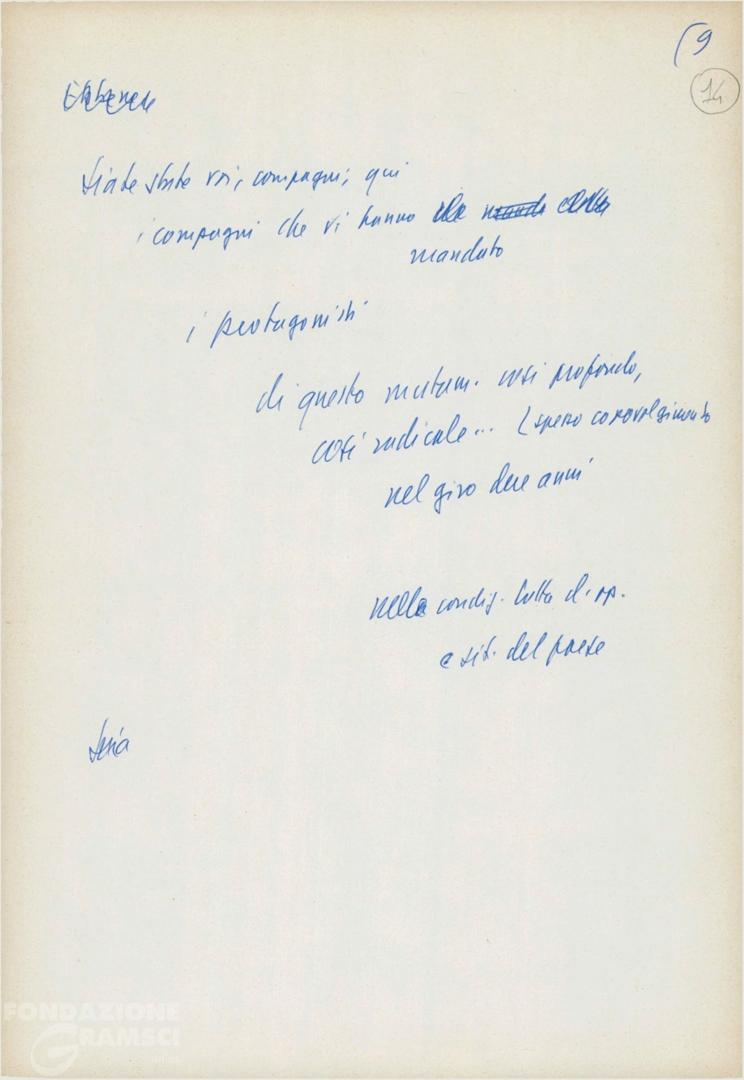 (9
14
Ebbene
siate state voi, compagni, qui
i compagni che vi hanno
mandato
i protagonisti
di questo mutam. così profondo,
così radicale... (
nel giro due anni
nella condiz. lotta d. op.
e sit. del paese
FONDAZIONE
GRAMSCI